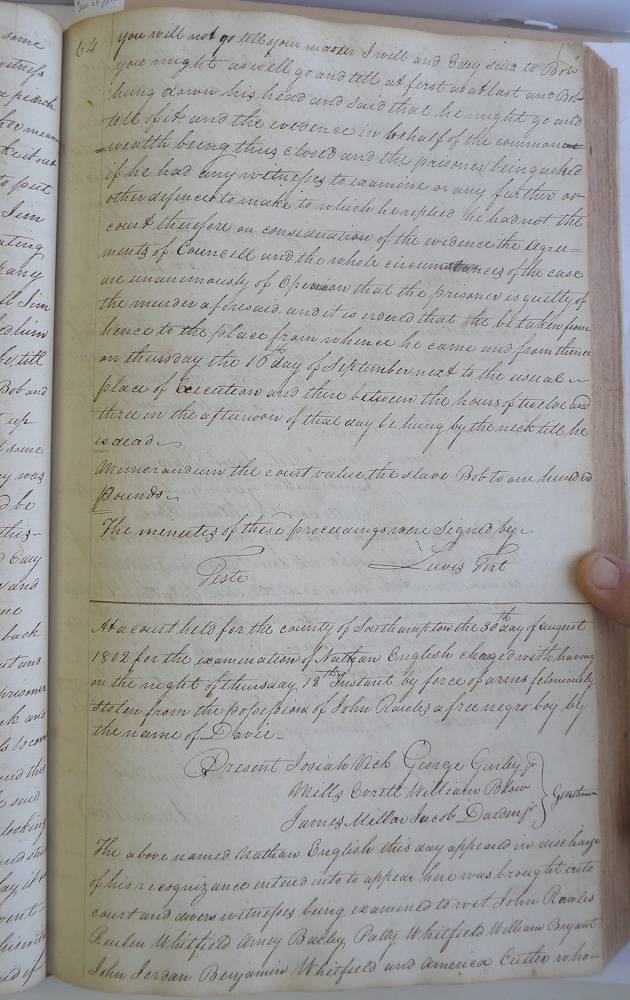 64
you will not go tell your master I will and Edey said to Bob
you might as well go and tell at first as at last and Bob
hung down his head and said that he might go and
tell of it, and the evidence in behalf of the common
=wealth being thus closed and the prisoner being asked
if he had any witnesses to examine or any further or
other defence to make to which he replied he had not the
court therefore on consideration of the evidence the argue=
ments of Councell and the whole circumstances of the case
are unanimously of Opinion that the prisoner is guilty of
the murder aforesaid. and it is ordered that he be taken from
hence to the place from whence he came and from thence
on thursday the 10th day of September next to the usual
place of Execution and there between the hours of twelve and
three in the afternoon of that day be hung by the neck till he
is dead
Memorandum the court value the slave Bob to one hundred
pounds
The minutes of these proceedings were Signed by
Teste Lewis Fort
At a court held for the county of Southampton the 30th day of august
1802 for the examination of Nathan English charged with having
on the night of thursday 12th Instant by force of arms feloniously
stolen from the possession of John Rawles a free negro boy by
the name of Davie
Present Josiah Vick George Gurley jr
Mills Everitt William Blow
James Millar Jacob Darden jr
Gentlemen
The above named Nathan English this day appeared in discharge
of his recognizance entered into to appear here was brought into
court and divers witnesses being examined to wit John Rawles
Reuben Whitfield Amey Bailey, Patty Whitfield William Bryant
John Jordan Benjamin Whitfield and America Cutler who